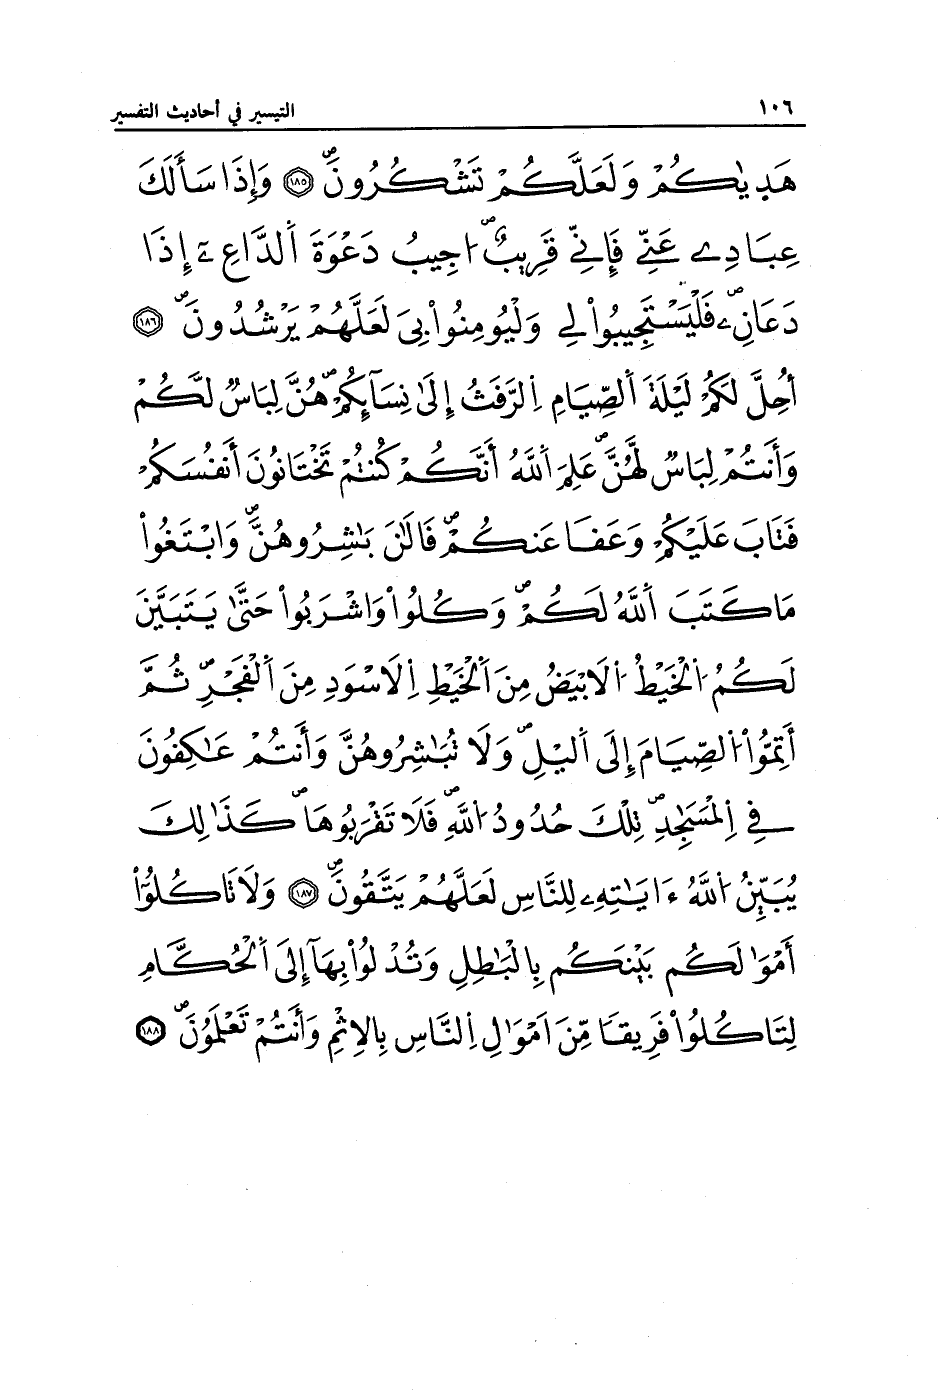 ١٠٦ التيسير في أحاديث التفسير
هَدِيٰكُمْ وَلَعَلَّكُمْ تَشْكُرُونَ ١٨٥ وَإِذَا سَأَلَكَ
عِبَادِے عَنِّے فَإِنِّے قَرِيبٌ ا۟جِيبُ دَعْوَةَ اَ۬لدَّاعِۦٓ إِذَا
دَعَانِۦ فَلْيَسْتَجِيبُوا۟ لِے وَلْيُومِنُوا۟ بِيَ لَعَلَّهُمْ يَرْشُدُونَ ١٨٦
أُحِلَّ لَكُمْ لَيْلَةَ اَ۬لصِّيَامِ اِ۬لرَّفَثُ إِلَىٰ نِسَآئِكُمْ هُنَّ لِبَاسٌ لَّكُمْ
وَأَنتُمْ لِبَاسٌ لَّهُنَّ عَلِمَ اَ۬للَّهُ أَنَّكُمْ كُنتُمْ تَخْتَانُونَ أَنفُسَكُمْ
فَتَابَ عَلَيْكُمْ وَعَفَا عَنكُمْ فَالَٰنَ بَٰشِرُوهُنَّ وَابْتَغُوا۟
مَا كَتَبَ اَ۬للَّهُ لَكُمْ وَكُلُوا۟ وَاشْرَبُوا۟ حَتَّىٰ يَتَبَيَّنَ
لَكُمُ اُ۬لْخَيْطُ اُ۬لَابْيَضُ مِنَ اَ۬لْخَيْطِ اِ۬لَاسْوَدِ مِنَ اَ۬لْفَجْرِ ثُمَّ
أَتِمُّوا۟ اُ۬لصِّيَامَ إِلَى اَ۬ليْلِ وَلَا تُبَٰشِرُوهُنَّ وَأَنتُمْ عَٰكِفُونَ
فِے اِ۬لْمَسَٰجِدِ تِلْكَ حُدُودُ اُ۬للَّهِ فَلَا تَقْرَبُوهَا كَذَٰلِكَ
يُبَيِّنُ اُ۬للَّهُ ءَايَٰتِهِۦ لِلنَّاسِ لَعَلَّهُمْ يَتَّقُونَ ١٨٧ وَلَا تَاكُلُوٓا۟
أَمْوَٰلَكُم بَيْنَكُم بِالْبَٰطِلِ وَتُدْلُوا۟ بِهَآ إِلَى اَ۬لْحُكَّامِ
لِتَاكُلُوا۟ فَرِيقًا مِّنَ اَمْوَٰلِ اِ۬لنَّاسِ بِالِاثْمِ وَأَنتُمْ تَعْلَمُونَ ١٨٨